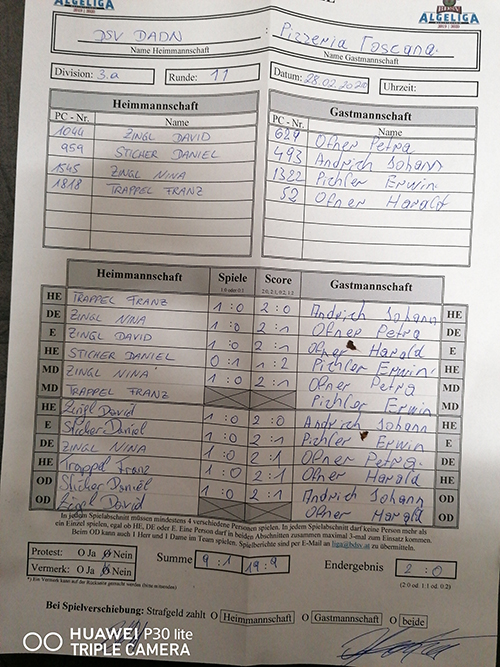 ALGELIGA
ALGELIGA
DSV DADN : Pizzeria Toscana.
Name Heimmannschaft Name Gastmannschaft
Division: 3.a Runde: 11 Datum: 28.02.2020 Uhrzeit:
Heimmannschaft Gastmannschaft
PC - Nr. Name PC - Nr. Name
1044 ZINGL DAVID 629 Ofner Petra
959 STICHER DANIEL 493 Andrich Johann
1545 ZINGL NINA 1322 Pichler Erwin
1818 TRAPPEL FRANZ 52 Ofner Harald
Heimmannschaft Spiele Score Gastmannschaft
1:0 oder 0:1 2:0, 2:1, 0:2, 1:2
HE TRAPPEL FRANZ 1:0 2:0 Andrich Johann HE
DE ZINGL NINA 1:0 2:1 Ofner Petra DE
E ZINGL DAVID 1:0 2:1 Ofner Harald E
HE STICHER DANIEL 0:1 1:2 Pichler Erwin HE
MD ZINGL NINA 1:0 2:1 Ofner Petra MD
MD TRAPPEL FRANZ Pichler Erwin MD
HE Zingl David 1:0 2:0 Andrich Johann HE
E Sticher Daniel 1:0 2:1 Pichler Erwin E
DE ZINGL NINA 1:0 2:1 Ofner Petra DE
HE Trappel Franz 1:0 2:1 Ofner Harald HE
OD Sticher Daniel 1:0 2:1 Andrich Johann OD
OD Zingl David Ofner Harald OD
In jedem Spielabschnitt müssen mindestens 4 verschiedene Personen spielen. In jedem Spielabschnitt darf keine Person mehr als
ein Einzel spielen, egal ob HE, DE oder E. Eine Person darf in beiden Abschnitten zusammen maximal 3-mal zum Einsatz kommen.
Beim OD kann auch 1 Herr und 1 Dame im Team spielen. Spielberichte sind per E-Mail an liga@bdsv.at zu übermitteln.
Protest: O Ja O Nein Summe 9:1 19:9 Endergebnis 2:0
Vermerk: O Ja O Nein (2:0 od. 1:1 od. 0:2)
*) Ein Vermerk kann auf der Rückseite gemacht werden
Bei Spielverschiebung: Strafgeld zahlt O Heimmannschaft O Gastmannschaft O beide
HUAWEI P30 lite
TRIPLE CAMERA